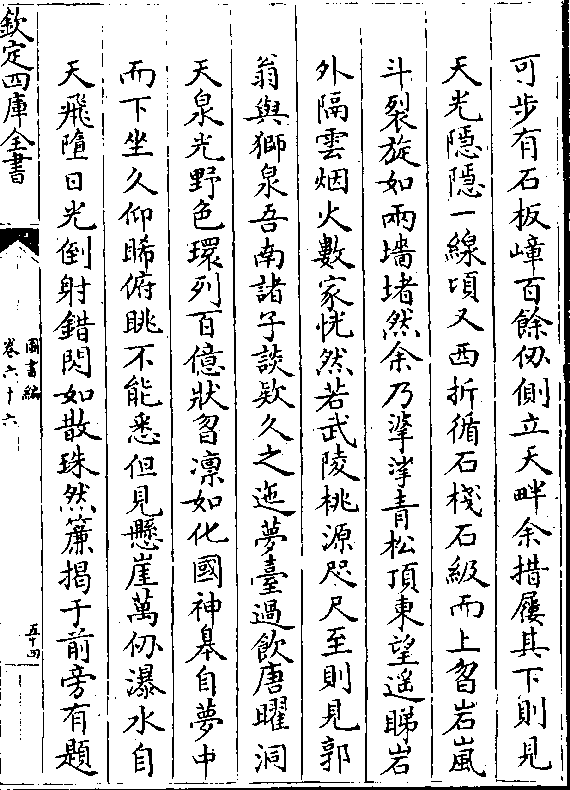 可步有石板嶂百餘仭側立天畔余措屨其下則見
天光隱隱一線頃又西折循石棧石級而上曶岩嵐
斗裂旋如兩墻堵然余乃𢴇𢴇青松頂東望遥睇岩
外隔雲烟火數家恍然若武陵桃源咫尺至則見郭
翁與獅泉吾南諸子談欵久之迤夢臺過飲唐曜洞
天泉光野色環列百億狀曶凛如化國神臯自夢中
而下坐久仰睎俯眺不能悉但見懸崖萬仭瀑水自
天飛墮日光倒射錯閃如散珠然簾揭于前旁有題
欽定四庫全書
圖書編
卷六十六
五十四